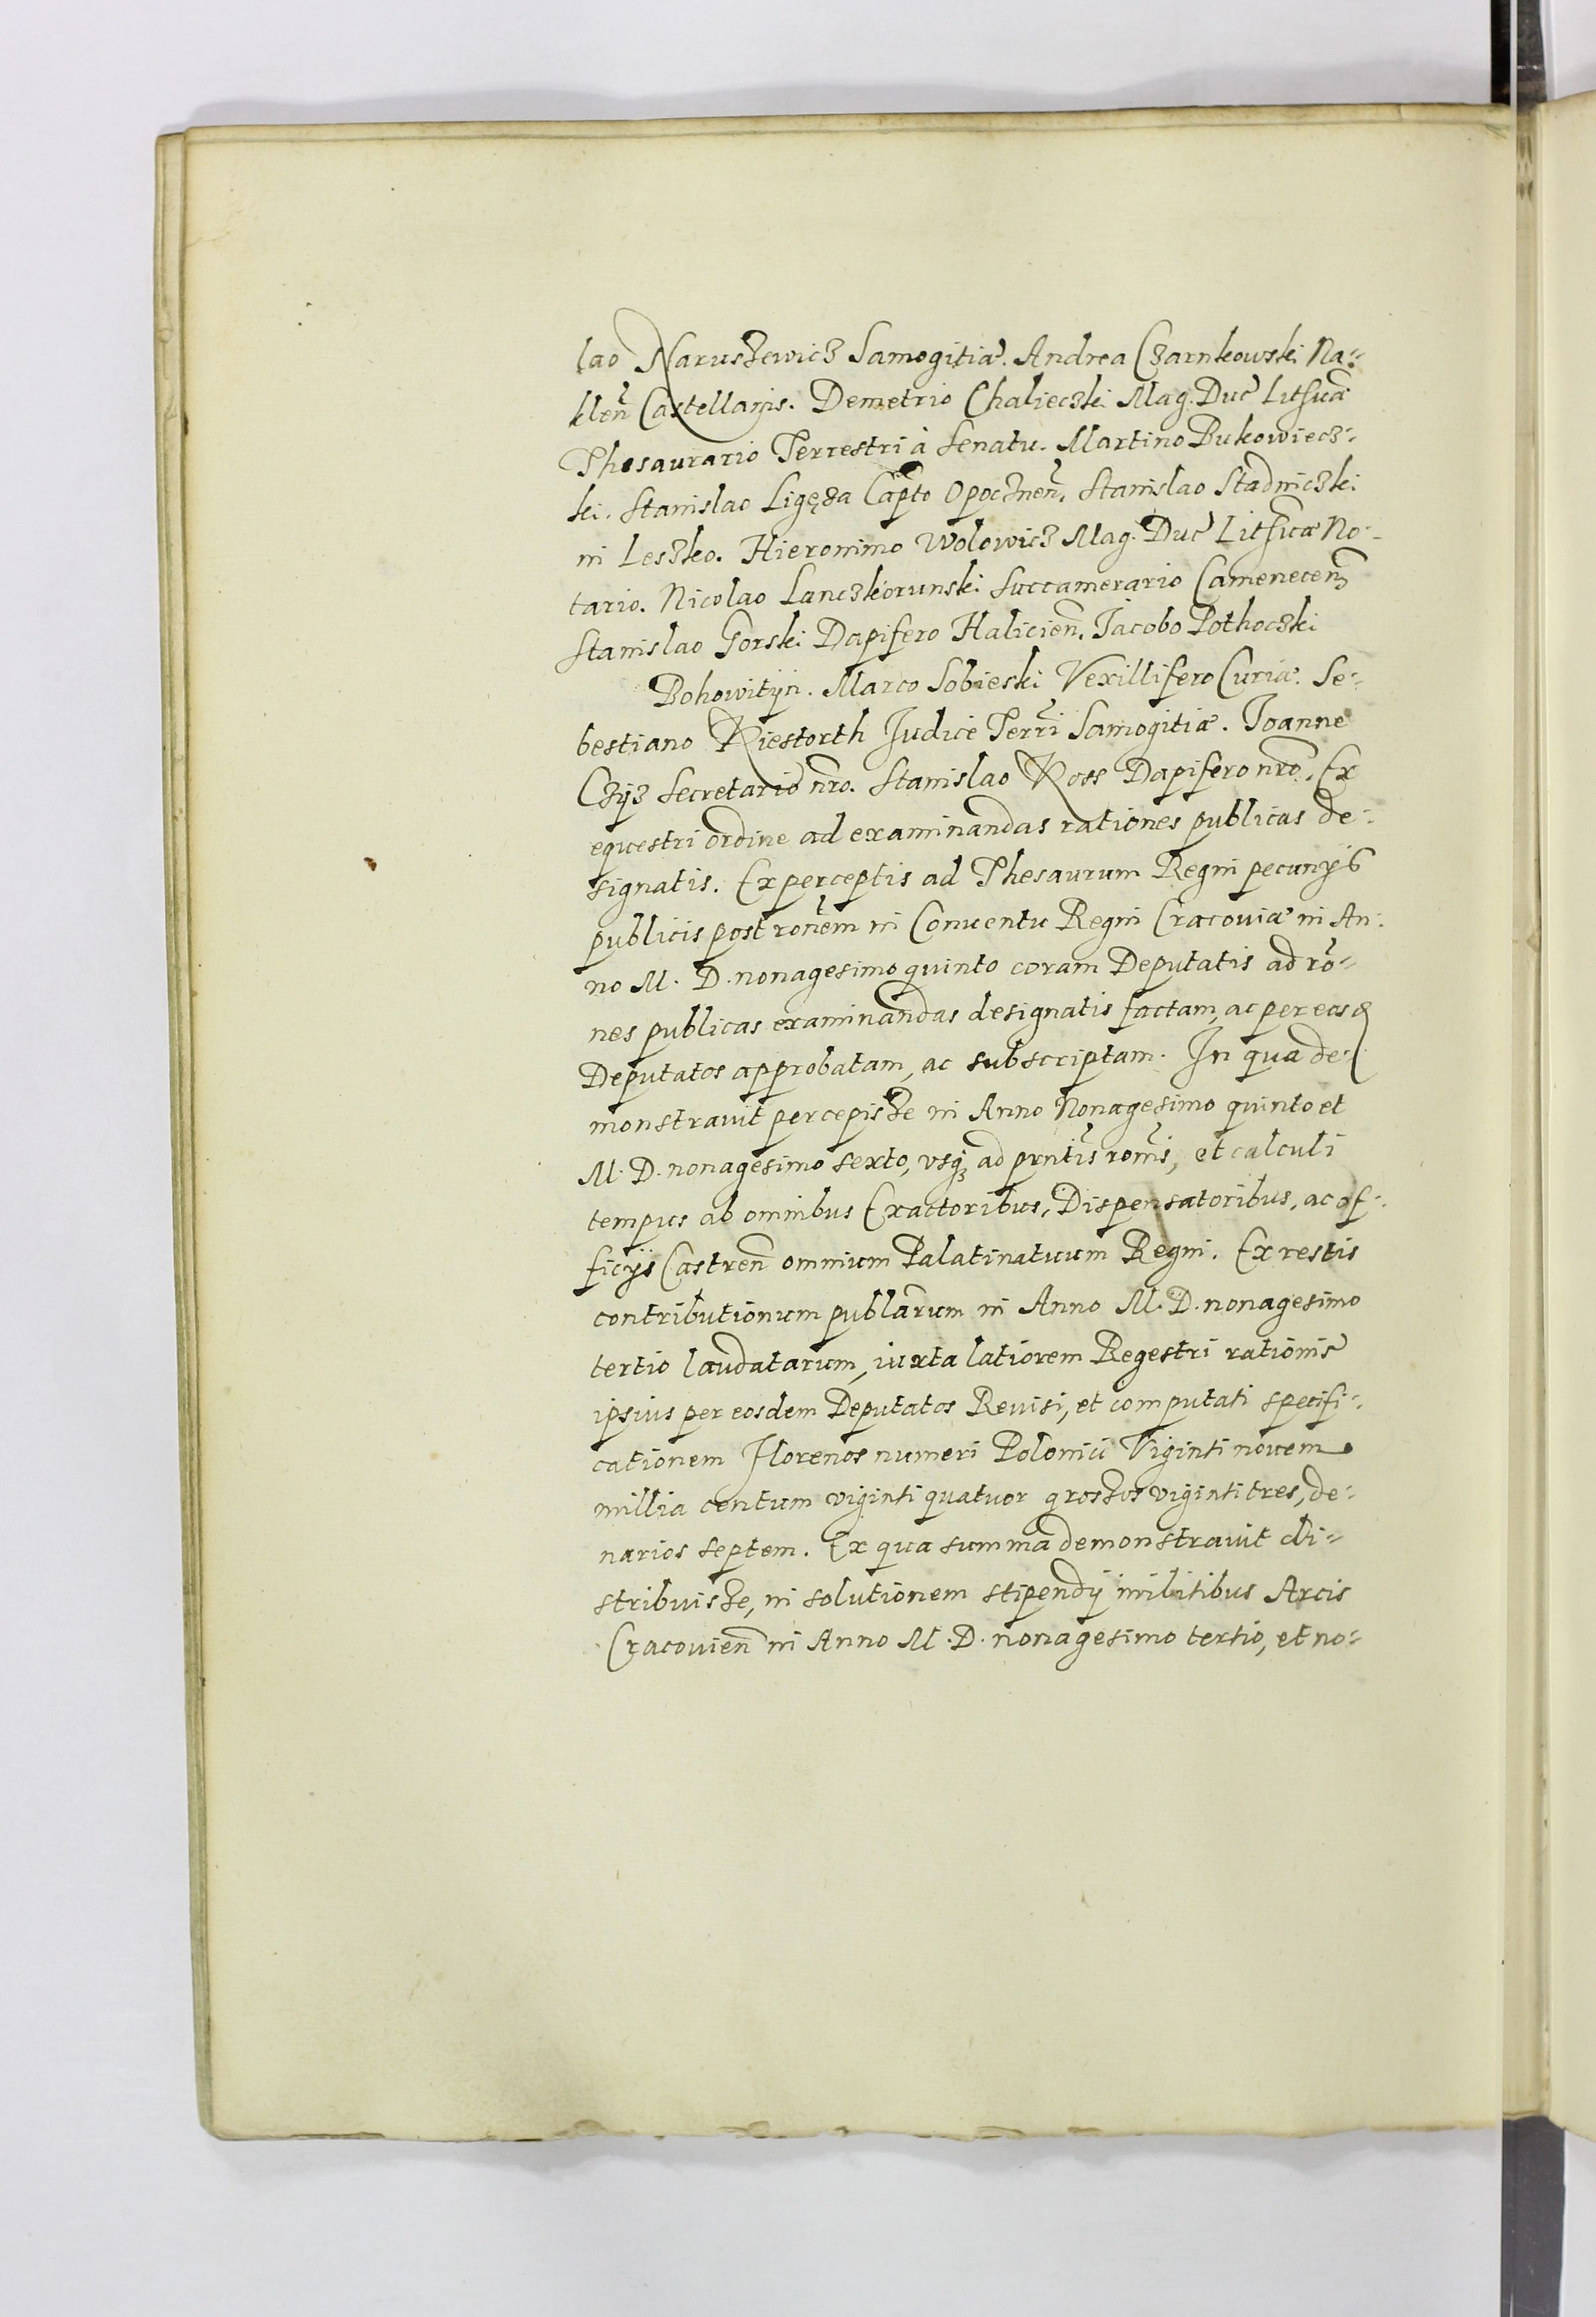 lao Naruszewicz Samogitiæ. Andrea Czarnkowski Na⸗
klen̄ Castellanis. Demetrio Chalieczki Mag. Duc Lithuā
Thesaurario Terrestri à Senatu. Martino Bukowiecz⸗
ki. Stanislao Ligęza Cap̄to Opocznen̄. Stanislao Stadniczki
in Leszko. Hieronimo Wolowicz Mag. Duc Lithuæ No⸗
tario. Nicolao Lanczkorunski Succamerario Camenecen̄
Stanislao Gorski Dapifero Halicien̄. Jacobo Pothoczki
Bohowityn. Marco Sobieski Vexillifero Curiæ. Se⸗
bestiano Kiestorth Judice Terrī Samogitiæ. Joanne
Czyz Secretario nr̄o. Stanislao Koss Dapifero nr̄o. Ex
equestri ordine ad examinandas rationes publicas de⸗
signatis. Ex perceptis ad Thesaurum Regni pecunijs
publicis post ron̄em in Conuentu Regni Cracouiæ in An⸗
no M. D. nonagesimo quinto coram Deputatis ad rō⸗
nes publicas examinandas designatis factam, ac per eosd
Deputatos approbatam, ac subscriptam. In qua de⸗
monstrauit percepisse in Anno Nonagesimo quinto et
M. D. nonagesimo sexto, vsq₃ ad pr̄ntis ron̄is, et calculi
tempus ab omnibus Exactoribus, Dispensatoribus, ac of⸗
ficijs Castren̄ omnium Palatinatuum Regni. Ex restis
contributionum publārum in Anno M. D. nonagesimo
tertio laudatarum, iuxta latiorem Regestri rationis
ipsius per eosdem Deputatos Reuisi, et computati specifi⸗
cationem Florenos numeri Polonici Viginti nouem
millia centum viginti quatuor grossos viginti tres, de⸗
narios septem. Ex qua summa demonstrauit di⸗
stribuisse, in solutionem stipendij militibus Arcis
Cracouien̄ in Anno M. D. nonagesimo tertio, et no⸗